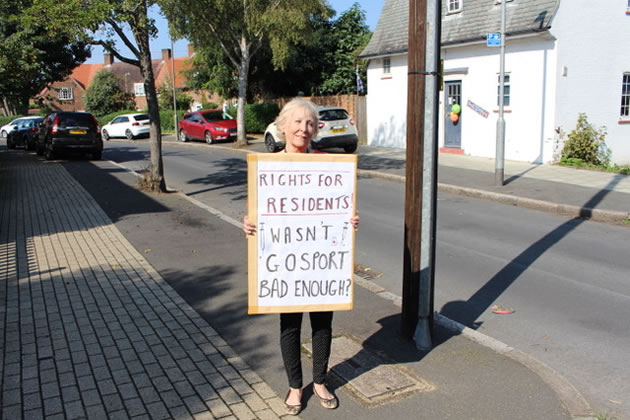 RIGHTS FOR
RESIDENTS!
WASN'T
GOSPORT
BAD ENOUGH?